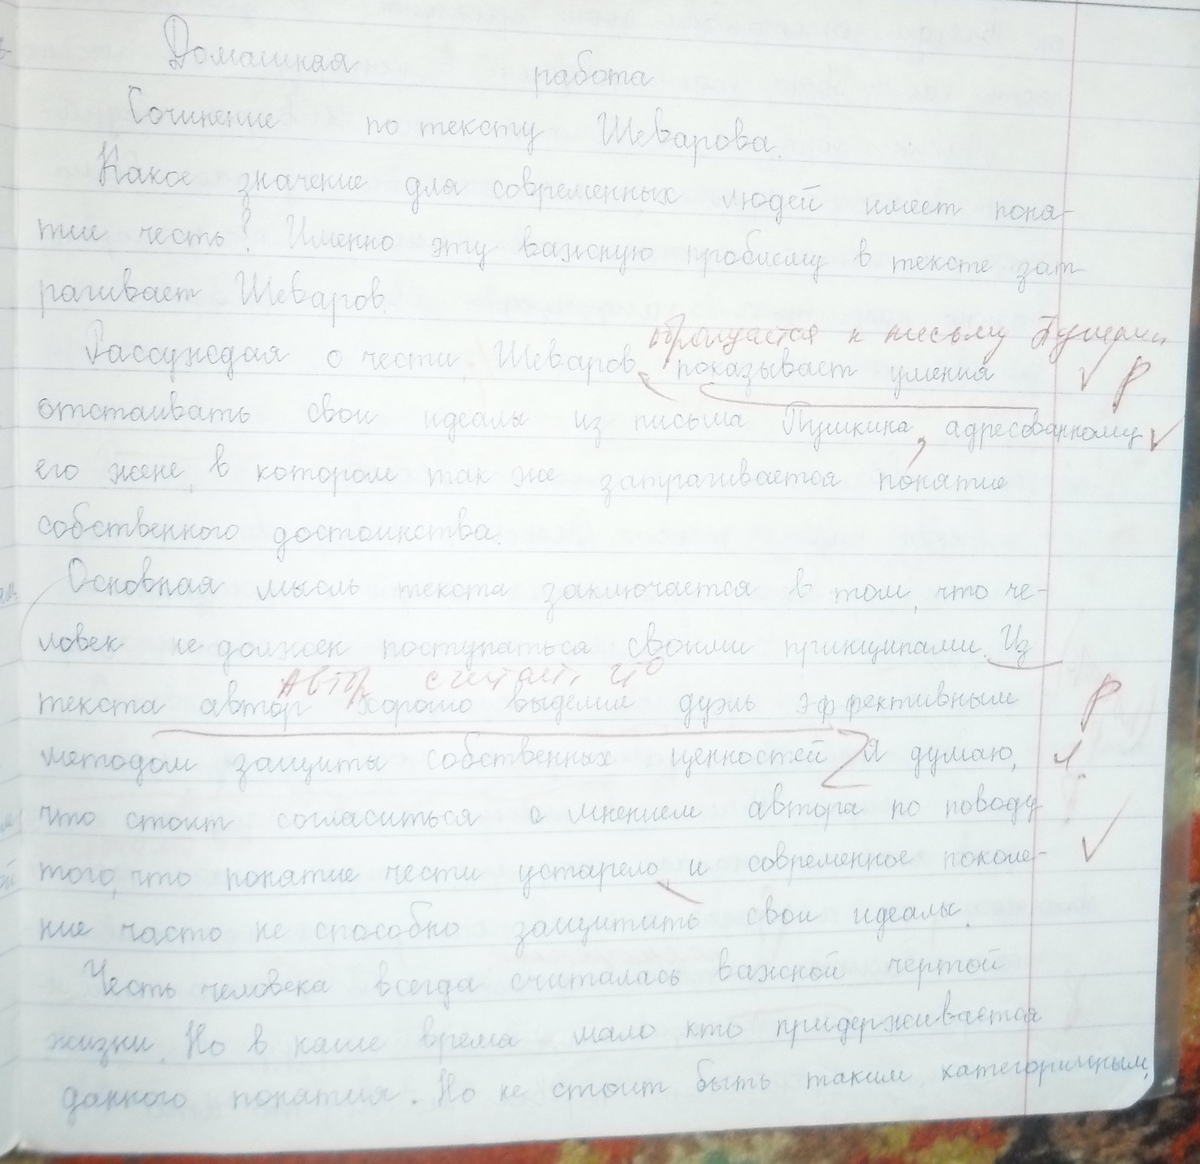 Домашняя работа
Сочинение по тексту Шеварова.
Какое значение для современных людей имеет поня-
тие честь? Именно эту важную проблему в тексте зат
рагивает Шеваров.
обращается к письму Пушкина
Рассуждая о чести, Шеваров, показывает умения √ Р
отстаивать свои идеалы из письма Пушкина, адресованному √
его жене, в котором так же затрагивается понятие
собственного достоинства.
Основная мысль текста заключается в том, что че-
ловек не должен поступаться своими принципами. Из
Автор считает, что
текста автор хорошо выделил дуэль эффективным Р
методом защиты собственных ценностей Я думаю,
что стоит согласиться с мнением автора по поводу
того, что понятие чести устарело, и современное поколе- √
ние часто не способно защитить свои идеалы.
Честь человека всегда считалась важной чертой
жизни. Но в наше время мало, кто придерживается
данного понятия. Но не стоит быть таким категоричным,